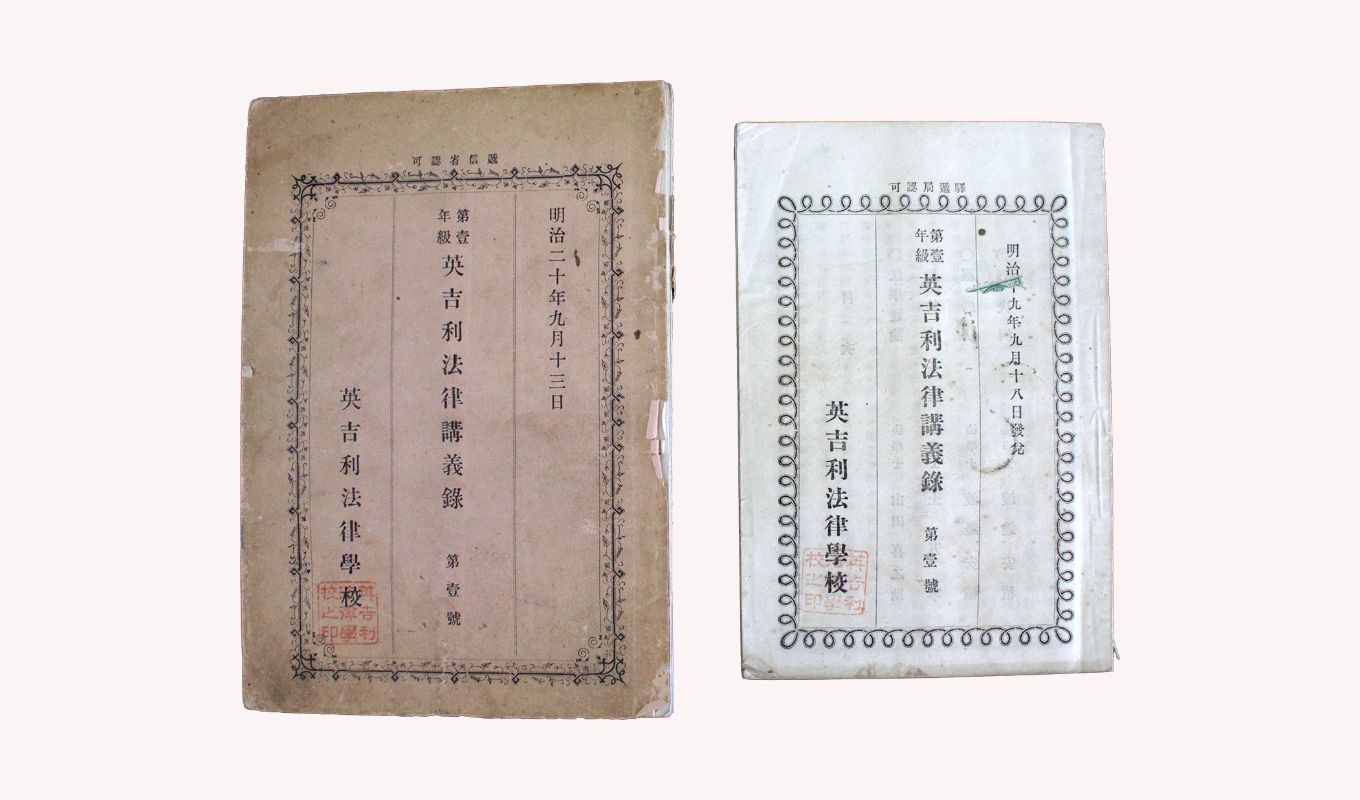 遞信省認可
明治二十年九月十三日
第壹年級
英吉利法律講義錄
第壹號
英吉利法律學校
英吉利法律學校之印
驛遞局認可
明治十九年九月十八日發兌
第壹年級
英吉利法律講義錄
第壹號
英吉利法律學校
英吉利法律學校之印